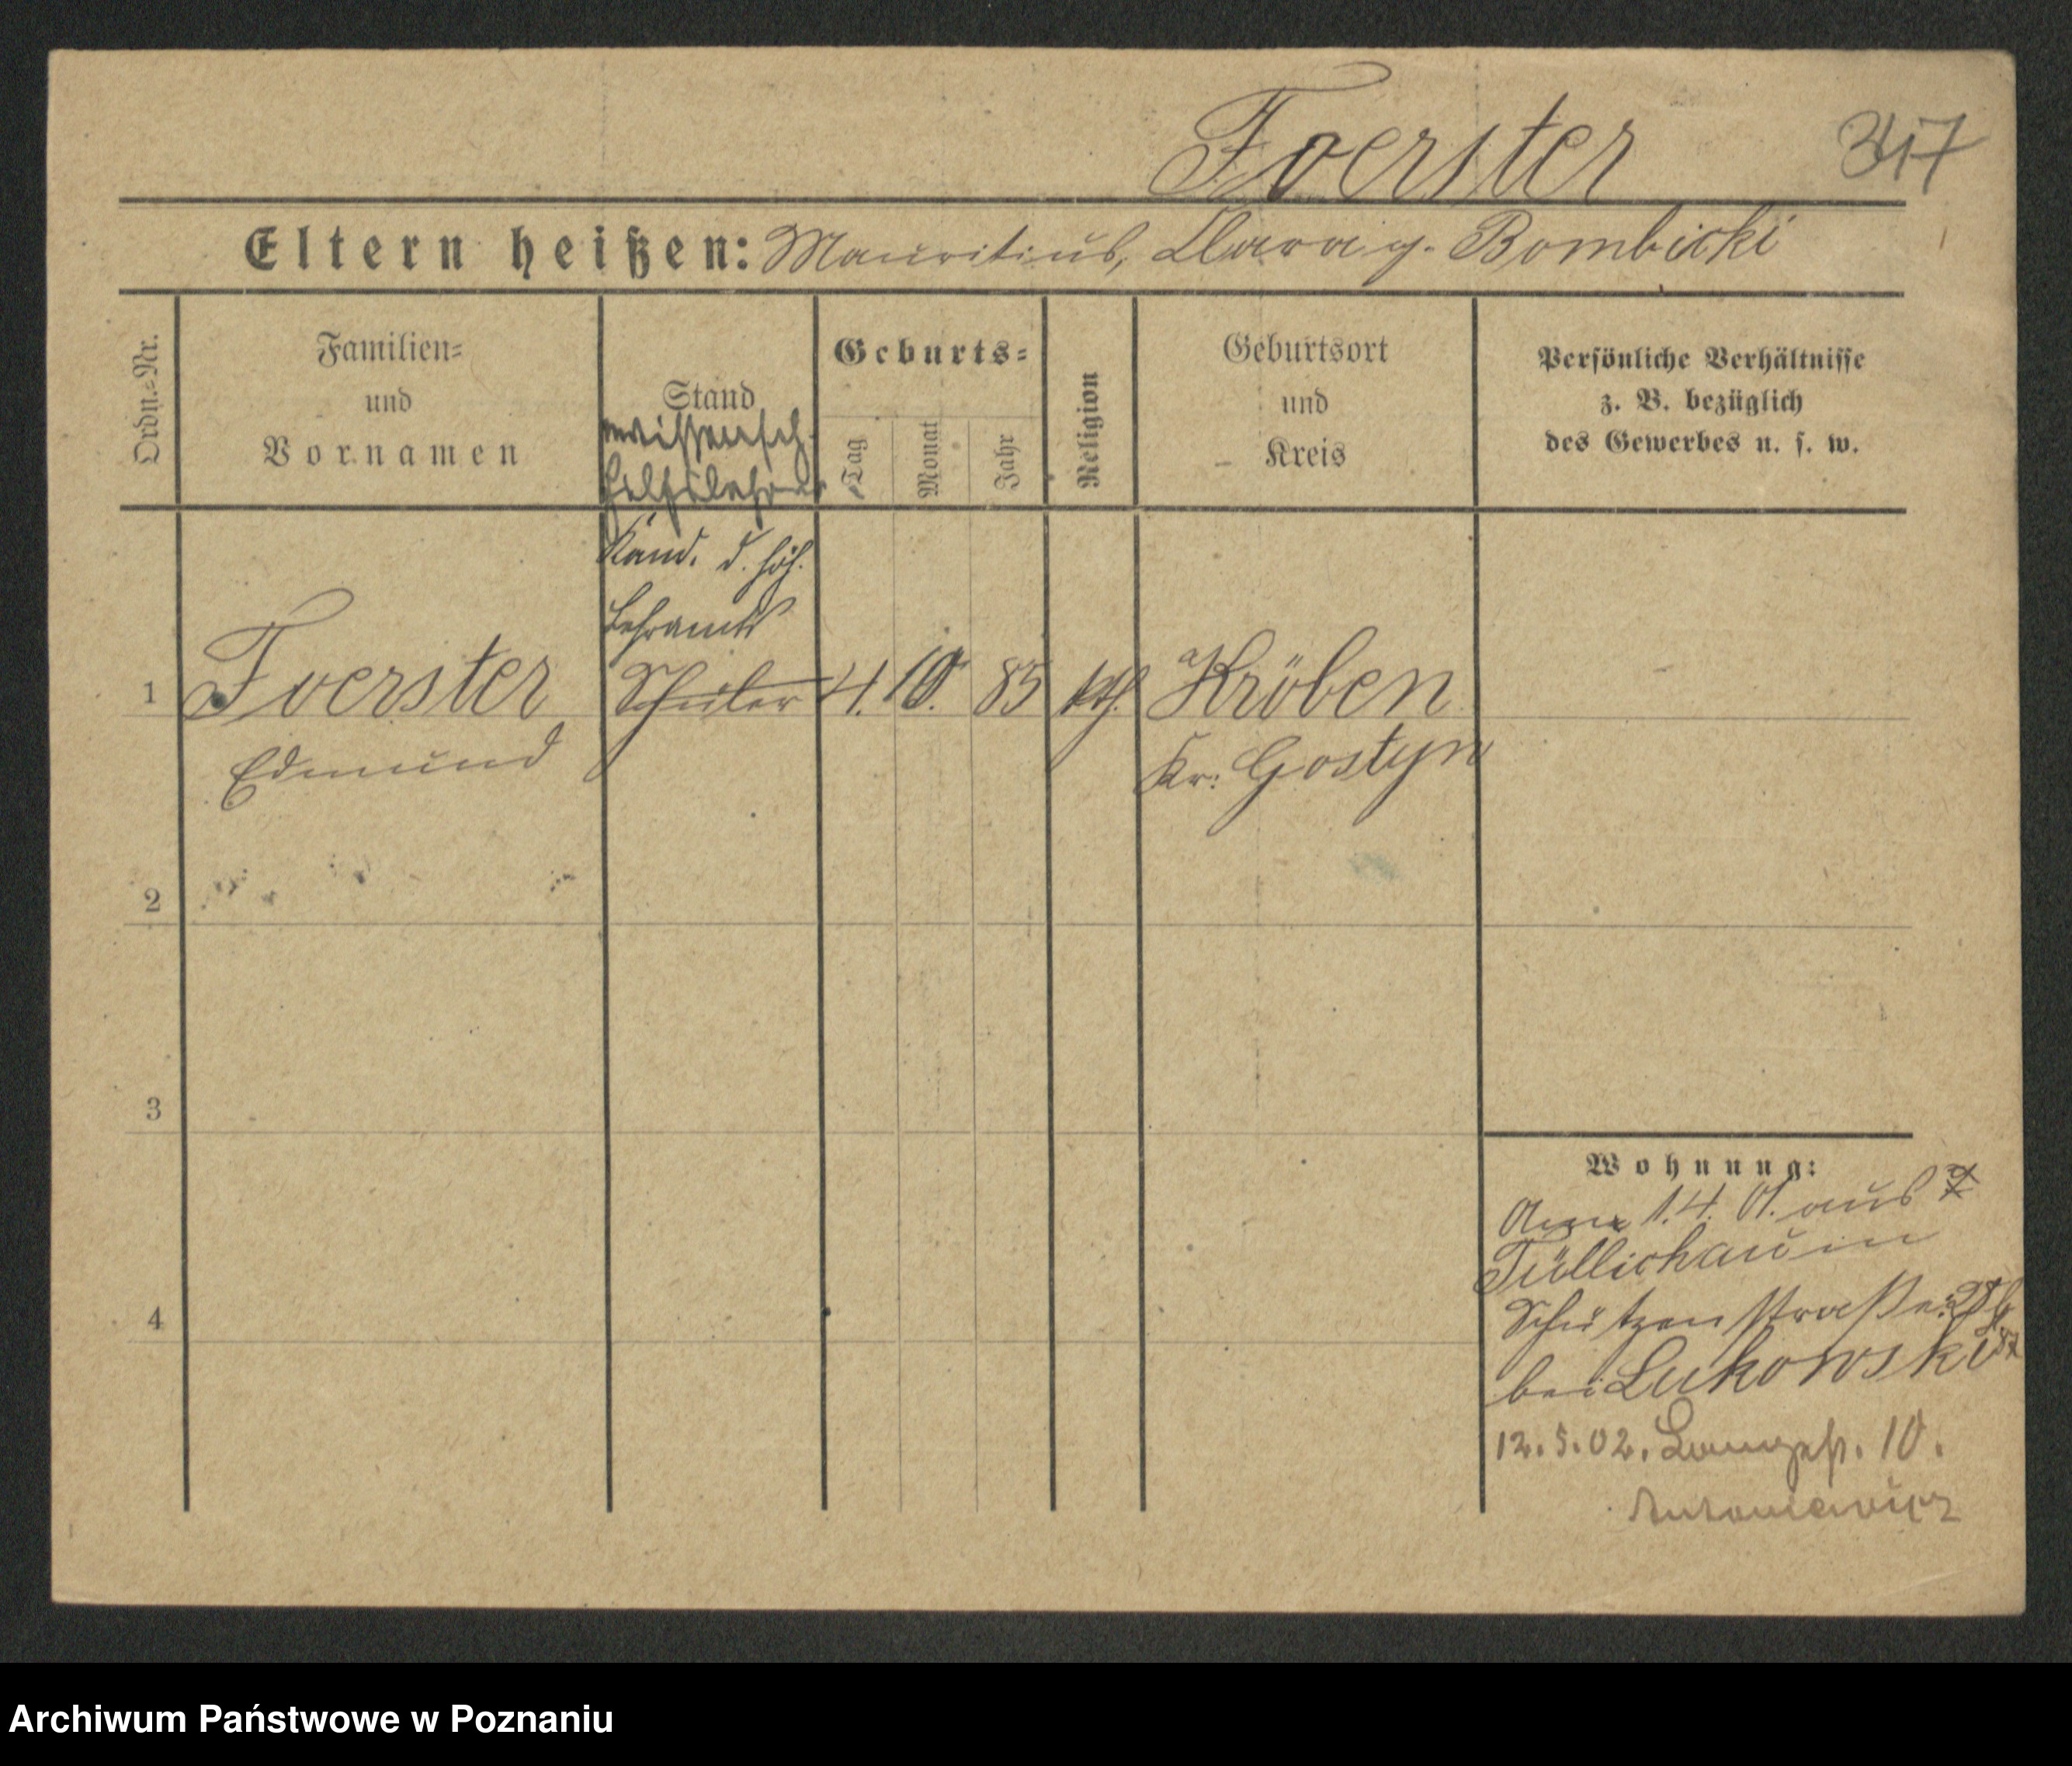 Foerster
347
Eltern heißen: Mauritius, Clara g. Bombicki
Ordn.=Nr.
Familien=
und
Vornamen
Stand
Geburts=
Tag
Monat
Jahr
Religion
Geburtsort
und
Kreis
Persönliche Verhältnisse
z. B. bezüglich
des Gewerbes u. s. w.
wissensch.
Hilfslehrer
Kand. d. höh.
Lehramts
1 Foerster Schüler 4. 10. 85 kth. Kröben
Edmund Kr: Gostyn
2
3
4
Wohnung:
Am 1.4.01. aus
Züllichau in
Schützenstraße
bei Lukowski
12.5.02. Langestr. 10.
Antoniewicz
Archiwum Państwowe w Poznaniu